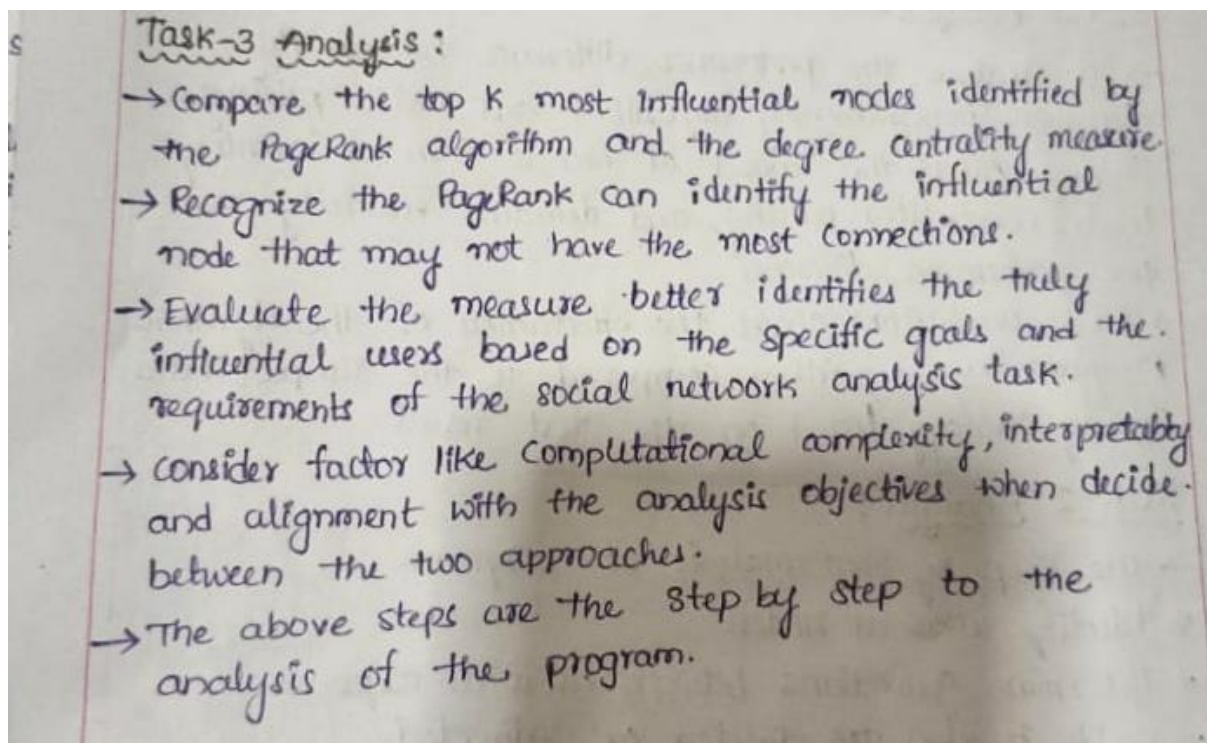 Task-3 Analysis :
→ Compare the top K most influential nodes identified by
the PageRank algorithm and the degree centrality measure.
→ Recognize the PageRank can identify the influential
node that may not have the most connections.
→ Evaluate the measure better identifies the truly
influential users based on the specific goals and the.
requirements of the social network analysis task.
→ consider factor like computational complexity, interpretabty
and alignment with the analysis objectives when decide.
between the two approaches.
→ The above steps are the step by step to the
analysis of the program.